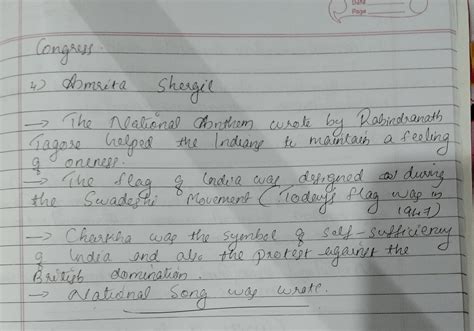 Date
Page
Congress.
4) Amrita Shergil
→ The National Anthem wrote by Rabindranath
Tagore helped the Indians to maintain a feeling
of oneness.
→ The flag of India was designed during
the Swadeshi Movement (Today's flag was in
1947)
→ Charkha was the symbol of self-sufficiency
of India and also the protest against the
British domination.
→ National Song was wrote.